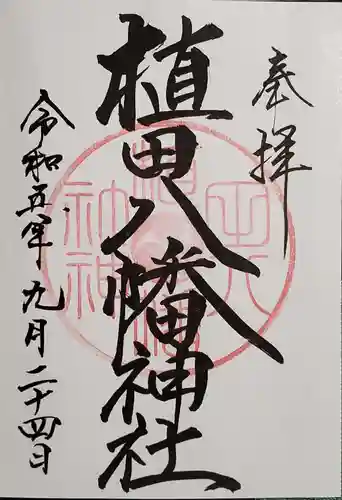 奉拝
植田八幡神社
令和五年九月二十四日